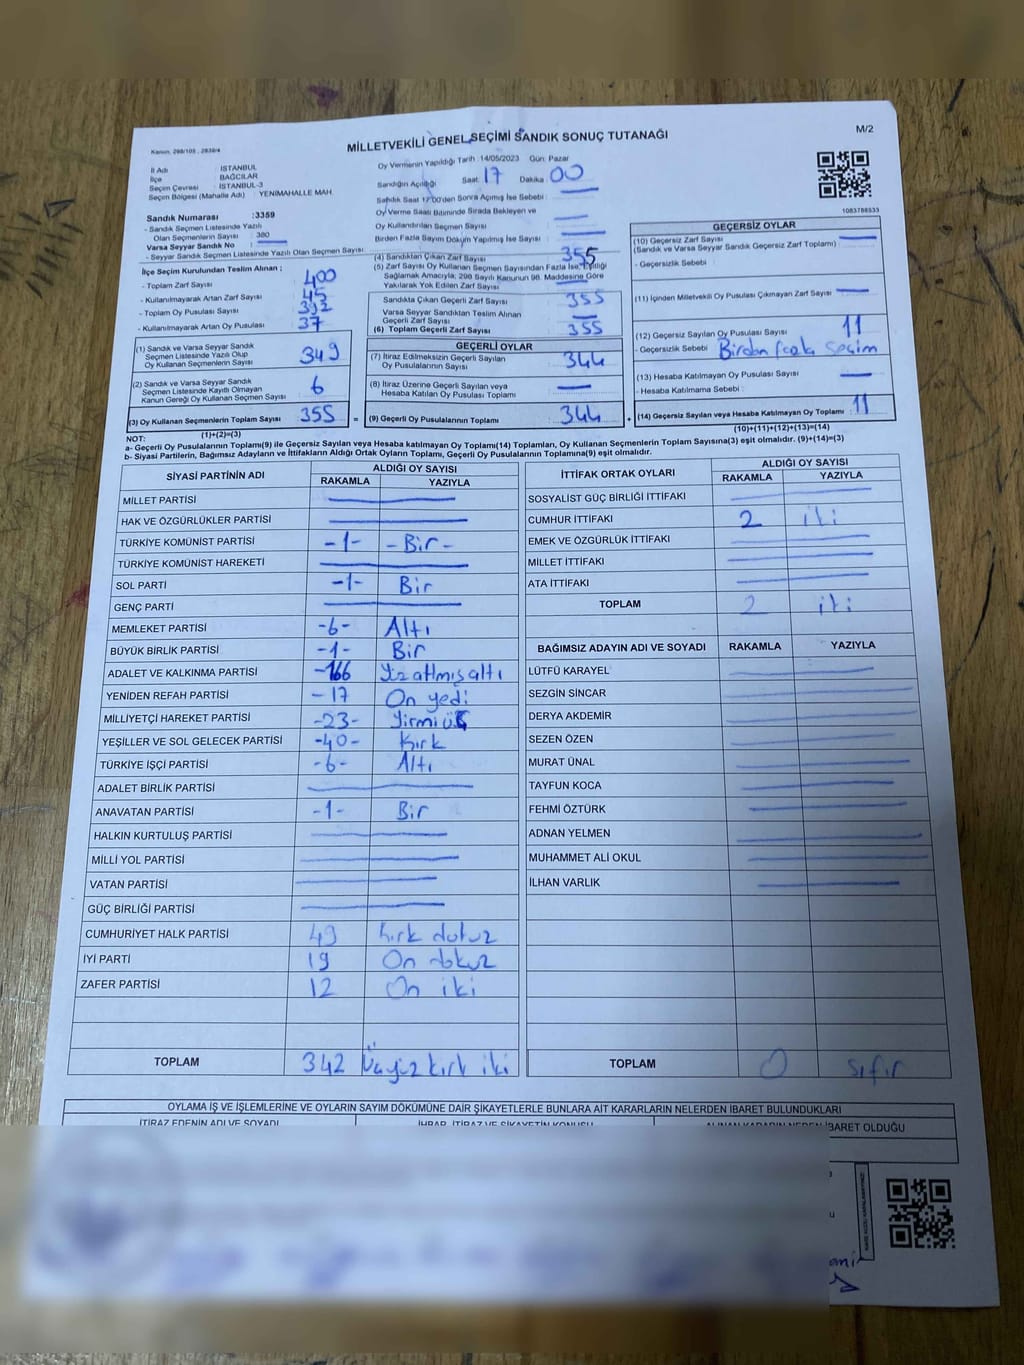 MİLLETVEKİLİ GENEL SEÇİMİ SANDIK SONUÇ TUTANAĞI
M/2
Kanun, 298/105 , 2839/4
İl Adı : İSTANBUL
İlçe : BAĞCILAR
Seçim Çevresi : İSTANBUL-3
Seçim Bölgesi (Mahalle Adı) : YENİMAHALLE MAH.
Sandık Numarası :3359
- Sandık Seçmen Listesinde Yazılı
Olan Seçmenlerin Sayısı : 380
Varsa Seyyar Sandık No :
- Seyyar Sandık Seçmen Listesinde Yazılı Olan Seçmen Sayısı :
İlçe Seçim Kurulundan Teslim Alınan ;
- Toplam Zarf Sayısı : 400
- Kullanılmayarak Artan Zarf Sayısı : 45
- Toplam Oy Pusulası Sayısı :
- Kullanılmayarak Artan Oy Pusulası : 37
(1) Sandık ve Varsa Seyyar Sandık
Seçmen Listesinde Yazılı Olup
Oy Kullanan Seçmenlerin Sayısı 349
(2) Sandık ve Varsa Seyyar Sandık
Seçmen Listesinde Kayıtlı Olmayan
Kanun Gereği Oy Kullanan Seçmen Sayısı : 6
(3) Oy Kullanan Seçmenlerin Toplam Sayısı 355 =
(1)+(2)=(3)
Oy Vermenin Yapıldığı Tarih :14/05/2023 Gün: Pazar
Sandığın Açılığı Saat: 17 Dakika 00
Sandık Saat 17:00'den Sonra Açılmış İse Sebebi :
Oy Verme Saati Bitiminde Sırada Bekleyen ve
Oy Kullandırılan Seçmen Sayısı
Birden Fazla Sayım Döküm Yapılmış İse Sayısı :
(4) Sandıktan Çıkan Zarf Sayısı 355
(5) Zarf Sayısı Oy Kullanan Seçmen Sayısından Fazla İse, Eşitliği
Sağlamak Amacıyla, 298 Sayılı Kanunun 98. Maddesine Göre
Yakılarak Yok Edilen Zarf Sayısı :
Sandıkta Çıkan Geçerli Zarf Sayısı 355
Varsa Seyyar Sandıktan Teslim Alınan
Geçerli Zarf Sayısı :
(6) Toplam Geçerli Zarf Sayısı 355
GEÇERLİ OYLAR
(7) İtiraz Edilmeksizin Geçerli Sayılan
Oy Pusulalarının Sayısı : 344
(8) İtiraz Üzerine Geçerli Sayılan veya
Hesaba Katılan Oy Pusulaları Toplamı
(9) Geçerli Oy Pusulalarının Toplamı 344 +
1083788533
GEÇERSİZ OYLAR
(10) Geçersiz Zarf Sayısı
(Sandık ve Varsa Seyyar Sandık Geçersiz Zarf Toplamı)
- Geçersizlik Sebebi :
(11) İçinden Milletvekili Oy Pusulası Çıkmayan Zarf Sayısı
(12) Geçersiz Sayılan Oy Pusulası Sayısı 11
- Geçersizlik Sebebi : Birden fazla seçim
(13) Hesaba Katılmayan Oy Pusulası Sayısı
- Hesaba Katılmama Sebebi :
(14) Geçersiz Sayılan veya Hesaba Katılmayan Oy Toplamı 11
(10)+(11)+(12)+(13)=(14)
NOT:
a- Geçerli Oy Pusulalarının Toplamı(9) ile Geçersiz Sayılan veya Hesaba katılmayan Oy Toplamı(14) Toplamları, Oy Kullanan Seçmenlerin Toplam Sayısına(3) eşit olmalıdır. (9)+(14)=(3)
b- Siyasi Partilerin, Bağımsız Adayların ve İttifakların Aldığı Ortak Oyların Toplamı, Geçerli Oy Pusulalarının Toplamına(9) eşit olmalıdır.
SİYASİ PARTİNİN ADI ALDIĞI OY SAYISI
RAKAMLA YAZIYLA
MİLLET PARTİSİ
HAK VE ÖZGÜRLÜKLER PARTİSİ
TÜRKİYE KOMÜNİST PARTİSİ -1- -Bir-
TÜRKİYE KOMÜNİST HAREKETİ
SOL PARTİ -1- Bir
GENÇ PARTİ
MEMLEKET PARTİSİ -6- Altı
BÜYÜK BİRLİK PARTİSİ -1- Bir
ADALET VE KALKINMA PARTİSİ -166 Yüzatmışaltı
YENİDEN REFAH PARTİSİ -17 On yedi
MİLLİYETÇİ HAREKET PARTİSİ -23- Yirmiüç
YEŞİLLER VE SOL GELECEK PARTİSİ -40- Kırk
TÜRKİYE İŞÇİ PARTİSİ -6- Altı
ADALET BİRLİK PARTİSİ
ANAVATAN PARTİSİ -1- Bir
HALKIN KURTULUŞ PARTİSİ
MİLLİ YOL PARTİSİ
VATAN PARTİSİ
GÜÇ BİRLİĞİ PARTİSİ
CUMHURİYET HALK PARTİSİ 49 Kırk dokuz
İYİ PARTİ 19 On dokuz
ZAFER PARTİSİ 12 On iki
TOPLAM 342 Üçyüz kırk iki
İTTİFAK ORTAK OYLARI ALDIĞI OY SAYISI
RAKAMLA YAZIYLA
SOSYALİST GÜÇ BİRLİĞİ İTTİFAKI
CUMHUR İTTİFAKI 2 iki
EMEK VE ÖZGÜRLÜK İTTİFAKI
MİLLET İTTİFAKI
ATA İTTİFAKI
TOPLAM 2 iki
BAĞIMSIZ ADAYIN ADI VE SOYADI RAKAMLA YAZIYLA
LÜTFÜ KARAYEL
SEZGİN SİNCAR
DERYA AKDEMİR
SEZEN ÖZEN
MURAT ÜNAL
TAYFUN KOCA
FEHMİ ÖZTÜRK
ADNAN YELMEN
MUHAMMET ALİ OKUL
İLHAN VARLIK
TOPLAM 0 sıfır
OYLAMA İŞ VE İŞLEMLERİNE VE OYLARIN SAYIM DÖKÜMÜNE DAİR ŞİKAYETLERLE BUNLARA AİT KARARLARIN NELERDEN İBARET BULUNDUKLARI
İTİRAZ EDENİN ADI VE SOYADI İHBAR, İTİRAZ VE ŞİKAYETİN KONUSU ALINAN KARARIN NEDEN İBARET OLDUĞU